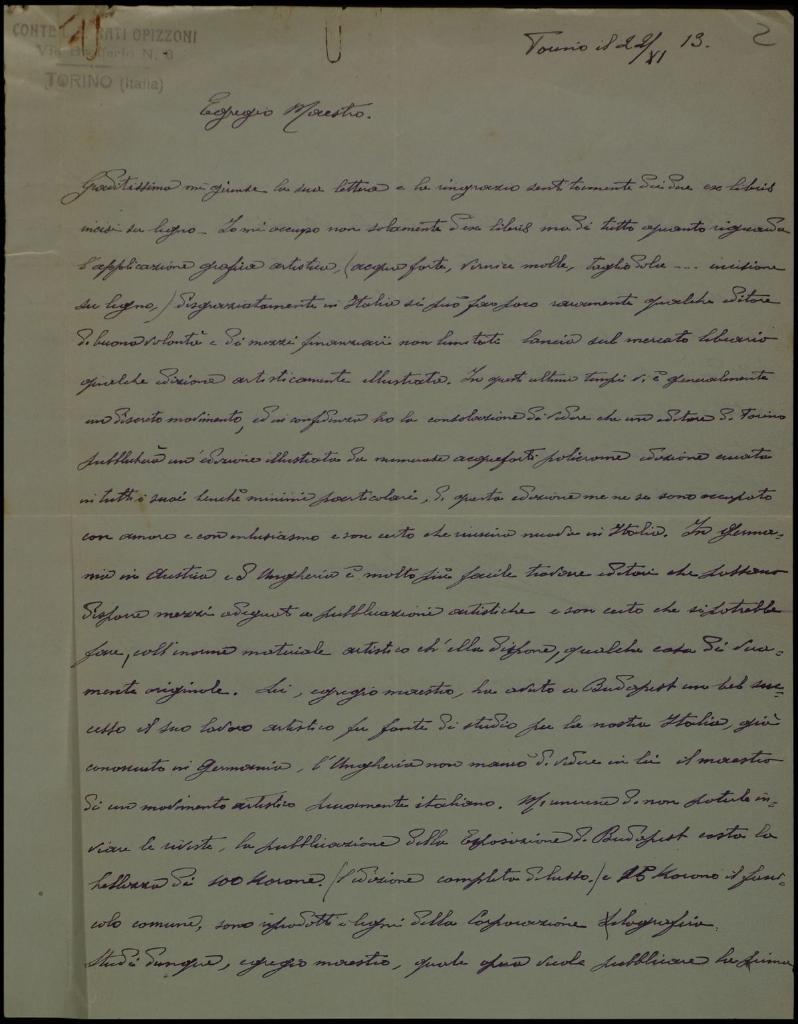 CONTE RATI OPIZZONI
Via N. 8
TORINO (Italia)
2
Torino il 22/XI 13.
Egregio Maestro.
Graditissima mi giunse la sua lettera e la ringrazio sentitamente dei due ex libris
incisi su legno – Io mi occupo non solamente d'ex libris ma di tutto quanto riguarda
l'applicazione grafica artistica, (acqua forte, vernice molle, taglio dolce --- incisione
su legno,) disgraziatamente in Italia si può far poco raramente qualche editore
di buona volontà e di mezzi finanziarii non limitati lancia sul mercato librario
qualche edizione artisticamente illustrata. In questi ultimi tempi v. è generalmente
un discreto movimento, ed in confidenza ho la consolazione di vedere che un editore di Torino
pubblicherà un'edizione illustrata da numerose acqueforti policrome edizione curata
in tutti i suoi benchè minimi particolari, di questa edizione me ne so sono occupato
con amore e con entusiasmo e son certo che riuscirà nuova in Italia. In Germa-
nia in Austria e d'Ungheria è molto più facile trovare editori che possano
disporre mezzi adeguati a pubblicazioni artistiche e son certo che si potrebbe
fare, coll'enorme materiale artistico ch'ella dispone, qualche cosa di vera-
mente originale. Lei, egregio maestro, ha avuto a Budapest un bel suc-
cesso il suo lavoro artistico fu fonte di studio per la nostra Italia, già
conosciuto in Germania, l'Ungheria non mancò di vedere in lei il maestro
di un movimento artistico puramente italiano. M'rincresce di non poterle in-
viare le riviste, la pubblicazione della Esposizione di Budapest costa la
bellezza di 100 Korone. (l'edizione completa di lusso.) e 15 Korone il fasci-
colo comune, sono riprodotti i legni della Corporazione Xilografia.
Studi dunque, egregio maestro, quale opera vuole pubblicare la prima